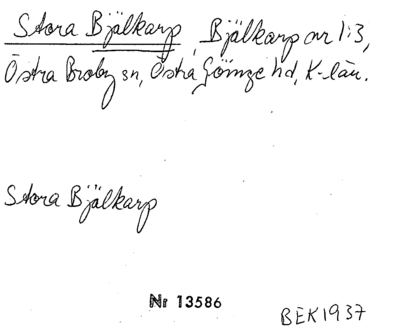 Stora Bjälkarp, Bjälkarp nr 1:3,
Östra Broby sn, Östra Göinge hd, K-län.
Stora Bjälkarp
Nr 13586
BEK 1937